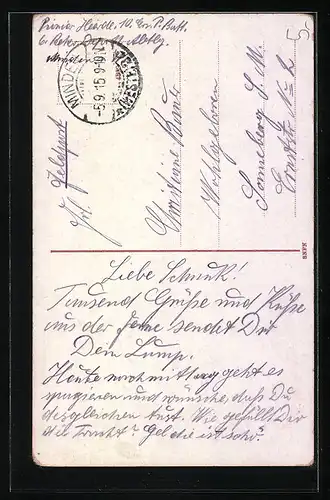 Pionier Heerde, 10. Er. P. Batt.
Minden
MINDEN
-5.9.15 9-10
(WESTF.)
5,
Feldpost
Frl.
Christine Bauer
Wohlgeboren
Sonneberg S. M.
No 2
Liebe Schnuk!
Tausend Grüße und Küße
aus der ferne sendet Dir
Dein Lump.
Heute nachmittag geht es
spazieren und wünsche, daß Du
desgleichen tust. Wie gefällt Dir
die Tracht? Gel die ist schö.